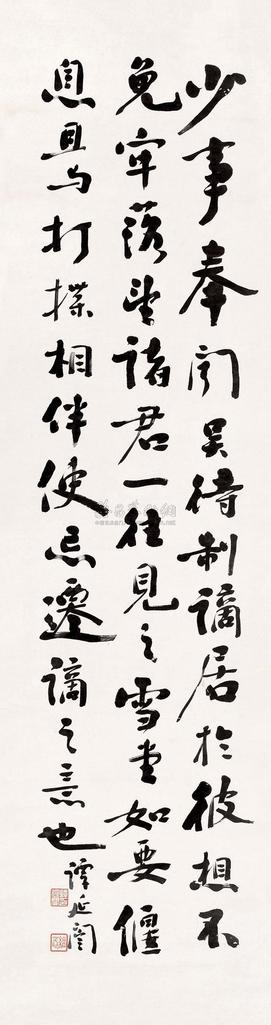 少事奉闻吴待制谪居於彼想不
免牢落望诸君一往見之雪堂如要偃
息且与打揲相伴使忘遷谪之意也
譚延闓